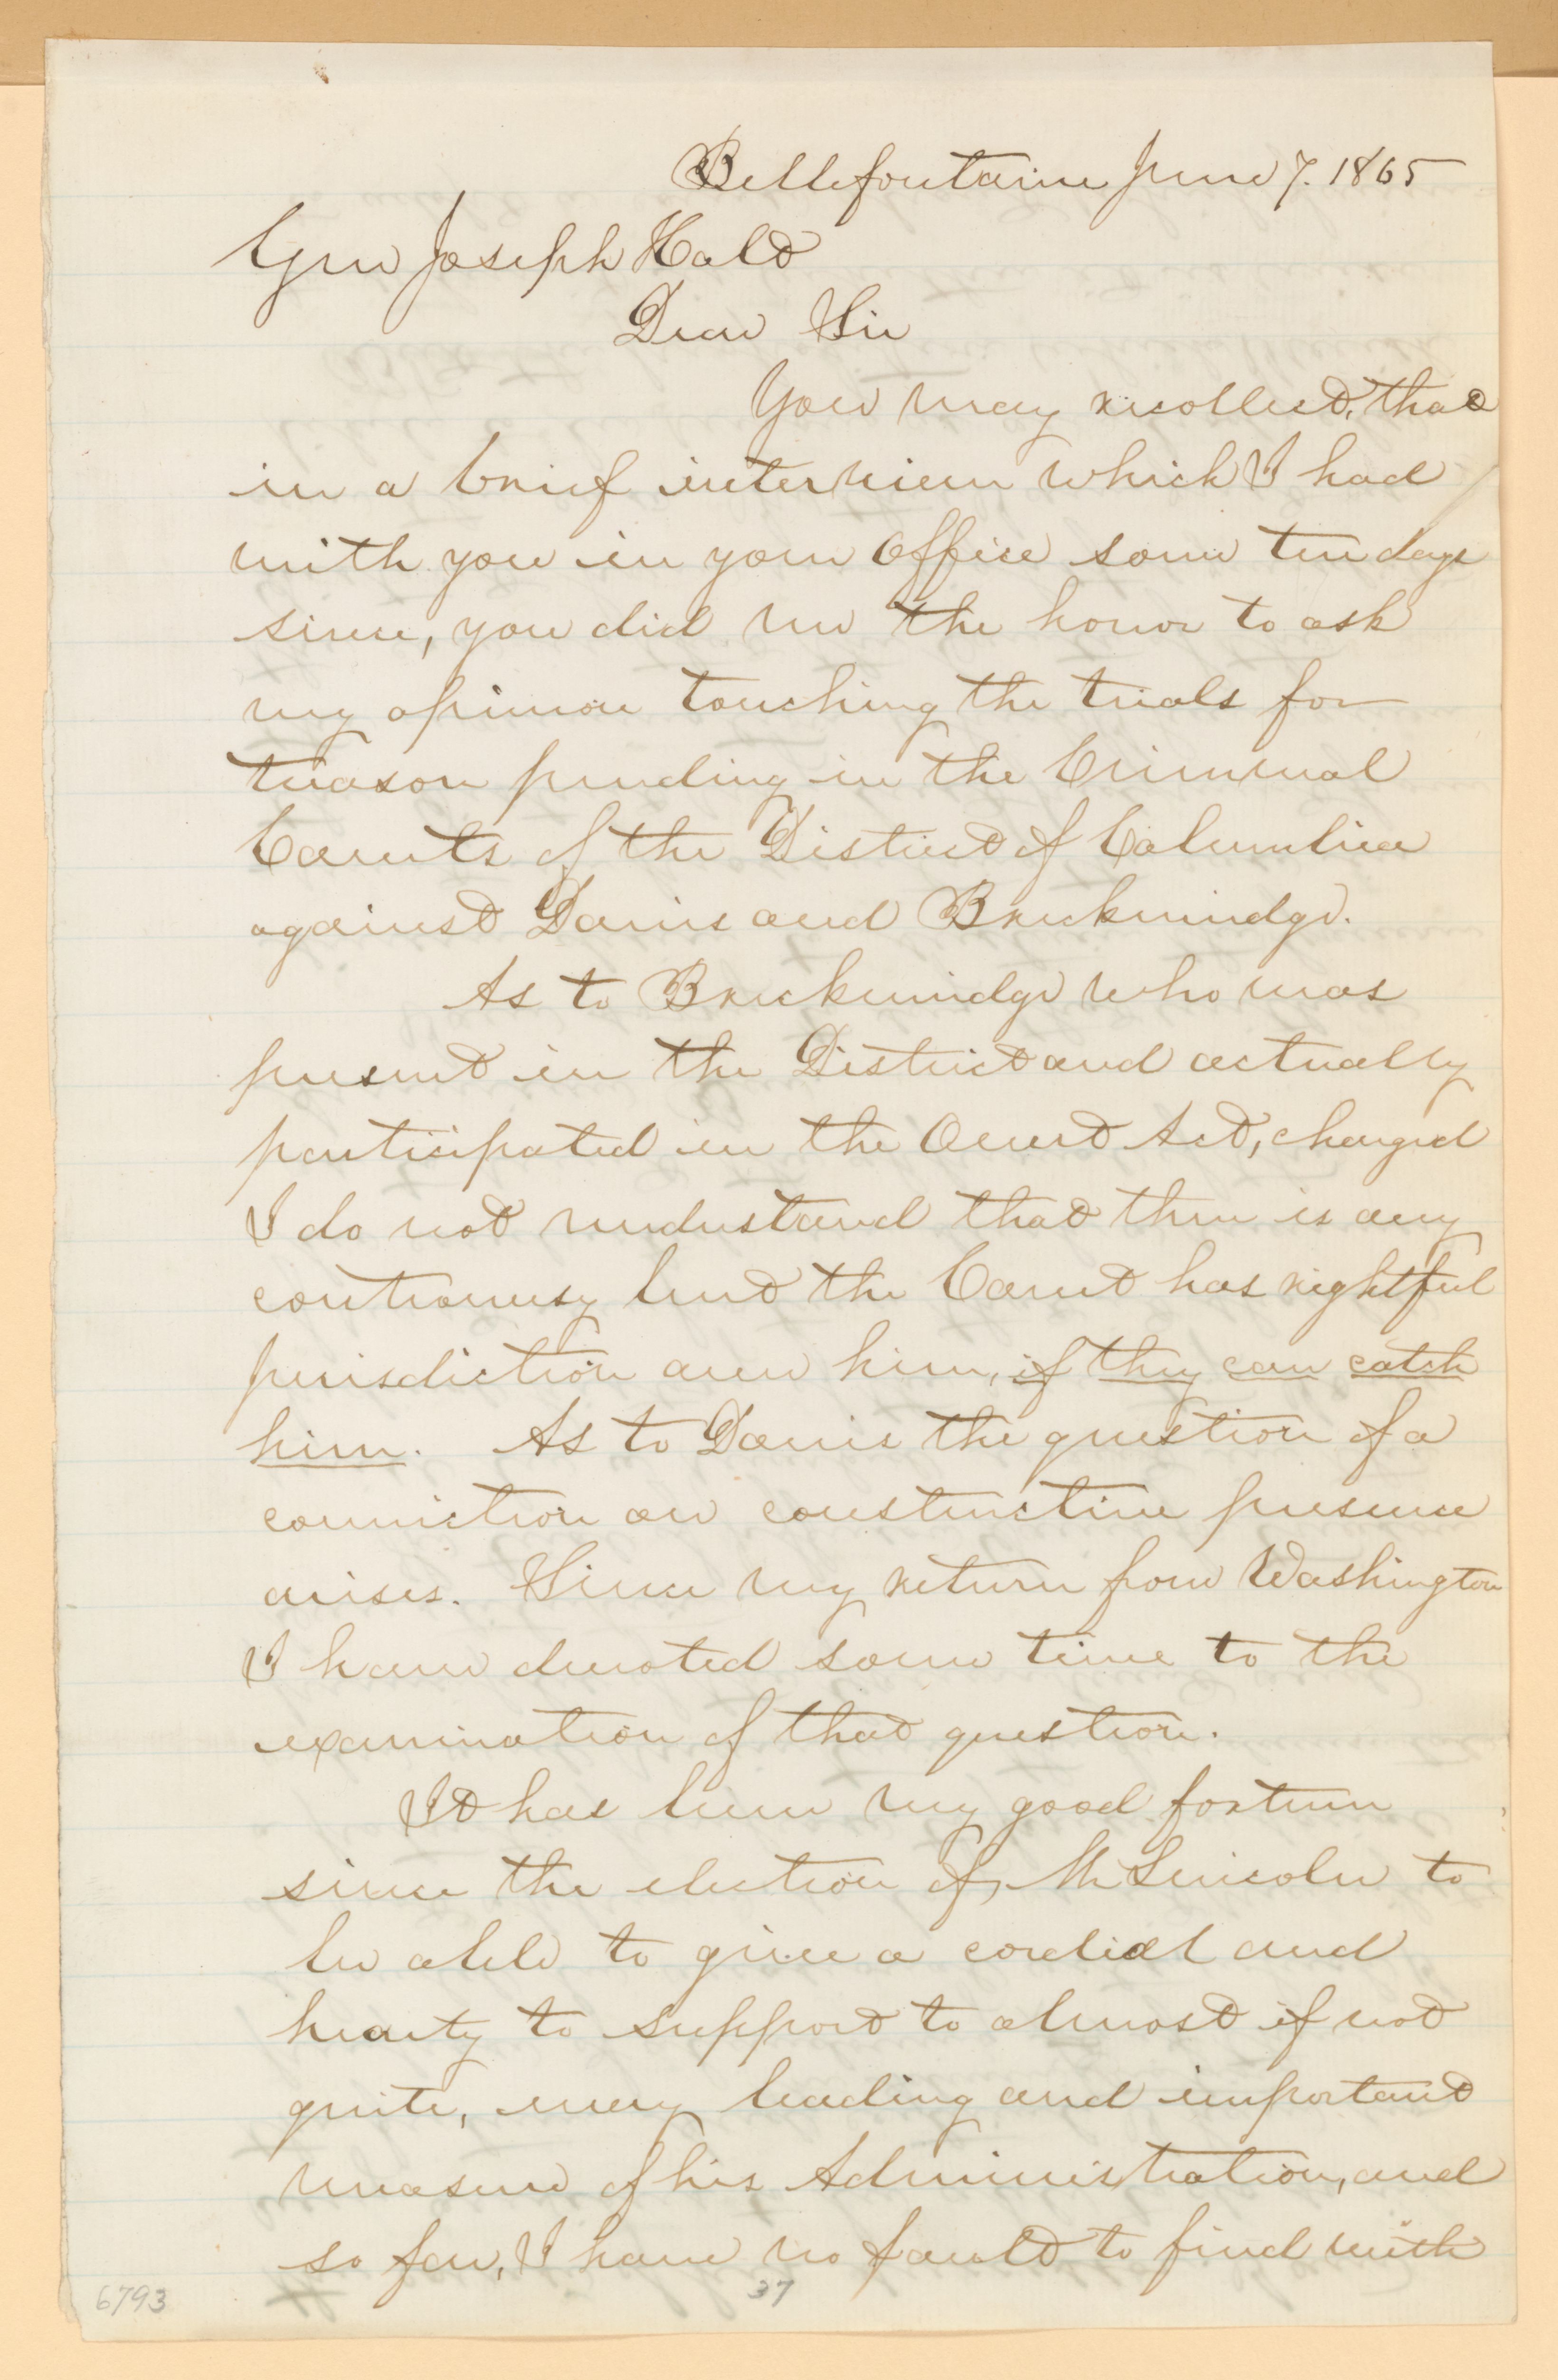 Bellefontaine June 7. 1865
Gen Joseph Holt
Dear Sir
You may recollect, that
in a brief interview which I had
with you in your office some ten days
since, you did me the honor to ask
my opinion touching the trials for
treason pending in the Criminal
Courts of the District of Columbia
against Davis and Breckinridge.
As to Breckinridge who was
present in the District and actually
participated in the Overt Act, charged
I do not understand that there is any
controversy but the Court has rightful
jurisdiction over him, if they can catch
him. As to Davis the question of a
conviction on constructive presence
arises. Since my return from Washington
I have devoted some time to the
examination of that question.
It has been my good fortune
since the election of Mr Lincoln to
be able to give a cordial and
hearty to support to almost if not
quite, every leading and important
measure of his Administration, and
so far, I have no fault to find with
37
6793